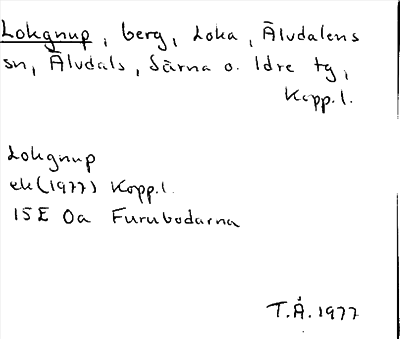 Lokgnup, berg, Loka, Älvdalens
sn, Älvdals, Särna o. Idre tg,
Kopp.l.
Lokgnup
ek (1977) Kopp.l.
15E 0a Furubodarna
T.Å. 1977